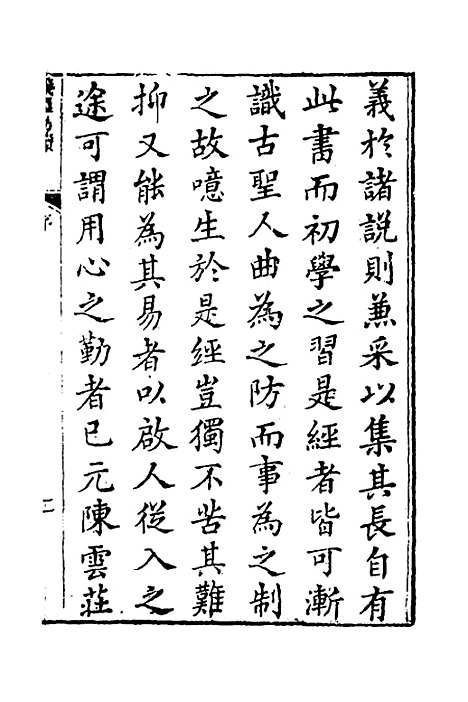 義於諸說則兼采以集其長自有
此書而初學之習是經者皆可漸
識古聖人曲為之防而事為之制
之故噫生於是經豈獨不苦其難
抑又能為其易者以啟人從入之
途可謂用心之勤者已元陳雲莊
序
二